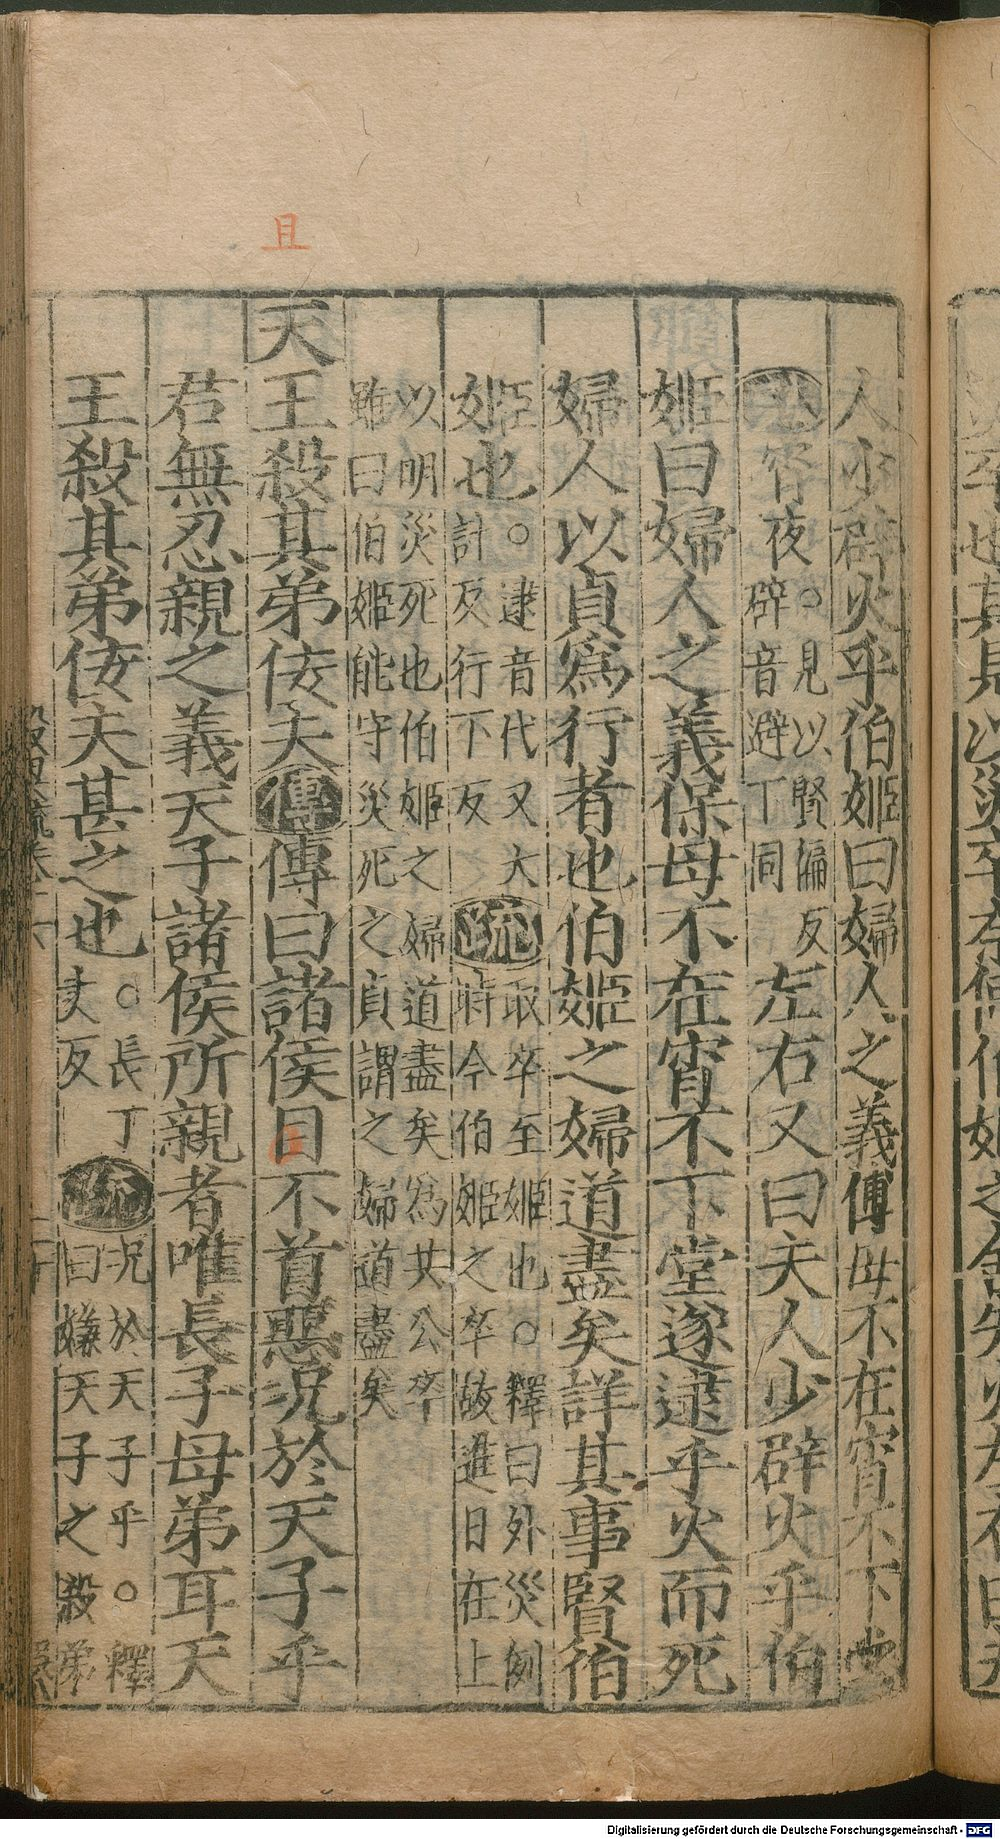 且
人少辟火乎伯姬曰婦人之義傅母不在宵不下堂
宵夜○見以賢徧反
辟音避丁同
左右又曰夫人少辟火乎伯
姬曰婦人之義保母不在宵不下堂遂逮乎火而死
婦人以貞爲行者也伯姬之婦道盡矣詳其事賢伯
姬也○逮音代又大
計反行下反
疏
取卒至姬也○釋曰外災例
時今伯姬之卒故進日在上
以明災死也伯姬之婦道盡矣爲共公卒
雖曰伯姬能守災死之貞謂之婦道盡矣
天王殺其弟佞夫傳傳曰諸侯目不首惡況於天子乎
君無忍親之義天子諸侯所親者唯長子母弟耳天
王殺其弟佞夫甚之也○長丁
丈反
疏
況於天子乎○釋
曰嫌天子之殺弟
Digitalisierung gefördert durch die Deutsche Forschungsgemeinschaft - DFG